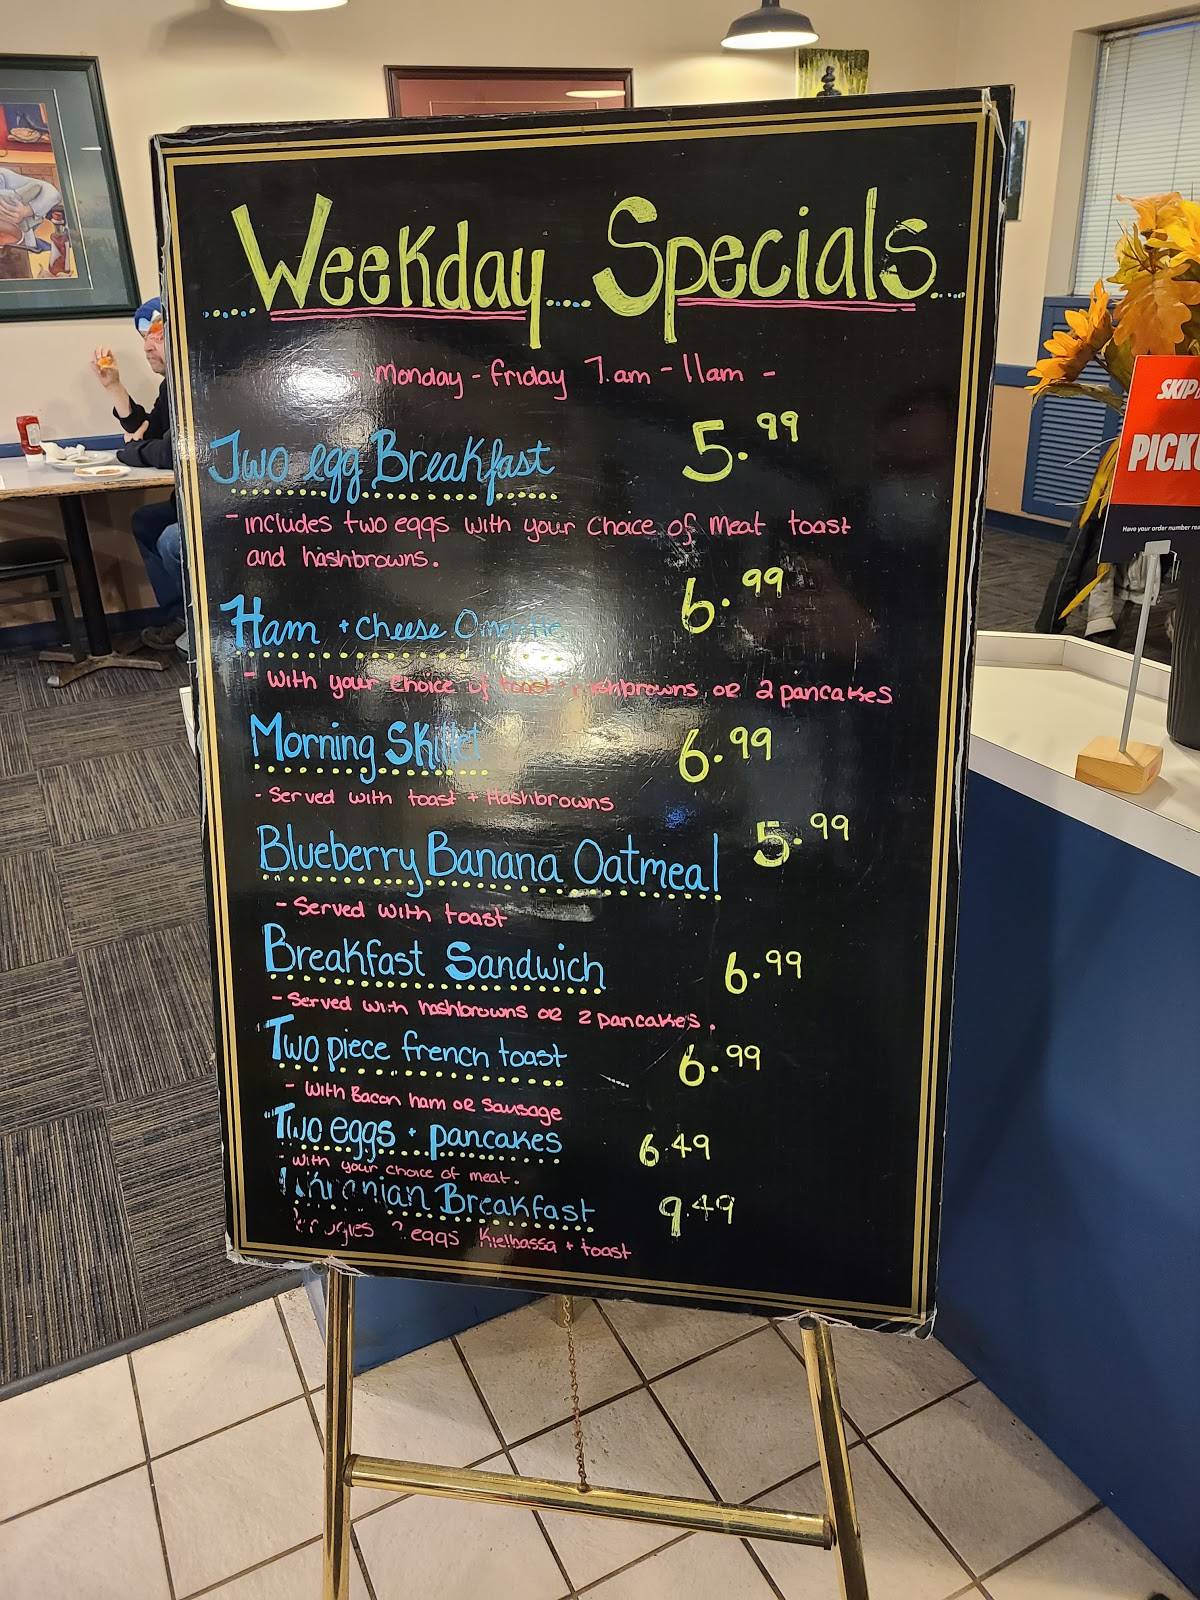 Weekday Specials
- Monday - Friday 7am - 11am -
Two egg Breakfast 5.99
- includes two eggs with your choice of meat toast
and hashbrowns.
Ham + cheese Omelette 6.99
- with your choice of toast + hashbrowns or 2 pancakes
Morning Skillet 6.99
- Served with toast + Hashbrowns
Blueberry Banana Oatmeal 5.99
- Served with toast
Breakfast Sandwich 6.99
- Served with hashbrowns or 2 pancakes.
Two piece french toast 6.99
- with Bacon ham or Sausage
Two eggs + pancakes 6.49
- with your choice of meat.
Ukranian Breakfast 9.49
2 eggs Kielbassa + toast
SKIP
PICK
Have your order number